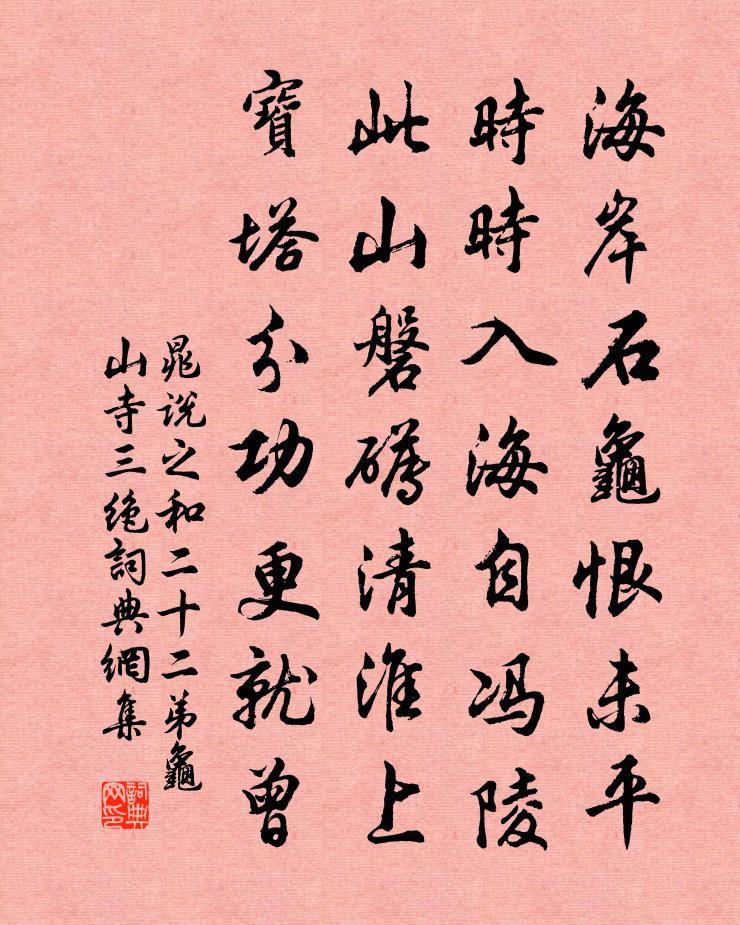 海岸石龜恨未平
時時入海自冯陵
此山磐礴清淮上
寶塔分功更就曾
晁說之和二十二弟龜
山寺三絕詞典網集
詞典网印